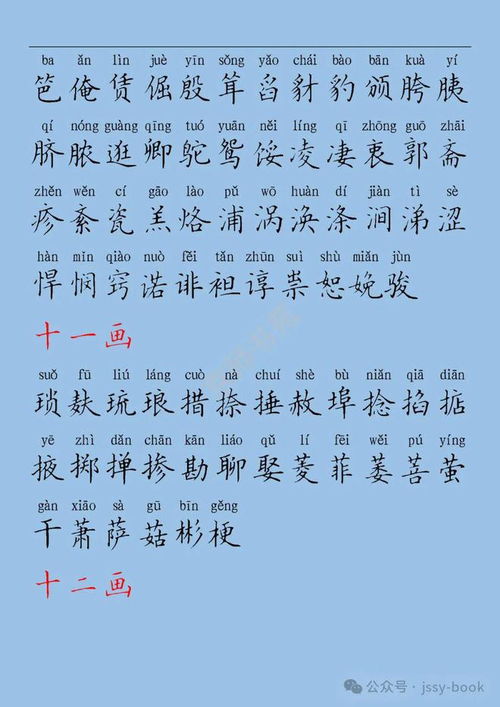 ba ǎn lìn juè yīn sǒng yǎo chái bào bān kuà yí
笆俺赁倔殷耸舀豺豹颁胯胰
qí nóng guàng qīng tuó yuān něi líng qī zhōng guō zhāi
脐脓逛卿鸵鸳馁凌凄衷郭斋
zhěn wěn cí gāo lào pǔ wō huàn dí jiàn tì sè
疹紊瓷羔烙浦涡涣涤涧涕涩
hàn mǐn qiào nuò fěi tǎn zhūn suì shù miǎn jùn
悍悯窍诺诽袒谆祟恕娩骏
十一画
suǒ fū liú láng cuò nà chuí shè bù niǎn qiā diān
琐麸琉琅措捺捶赦埠捻掐掂
yē zhì dǎn chān kān liáo qǔ lí fēi wěi pú yíng
掖掷掸掺勘聊娶菱菲萎菩萤
gàn xiāo sà gū bīn gěng
干萧萨菇彬梗
十二画
公众号·jssy-book